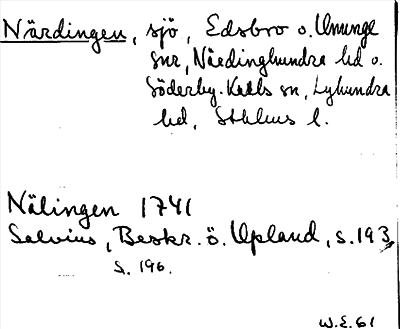 Närdingen, sjö, Edsbro o. Ununge
snr, Närdinghundra hd o.
Söderby-Karls sn, Lyhundra
hd, Sthlms l.
Nälingen 1741
Salvius, Beskr. ö. Upland, s. 193,
s. 196.
W.E. 61